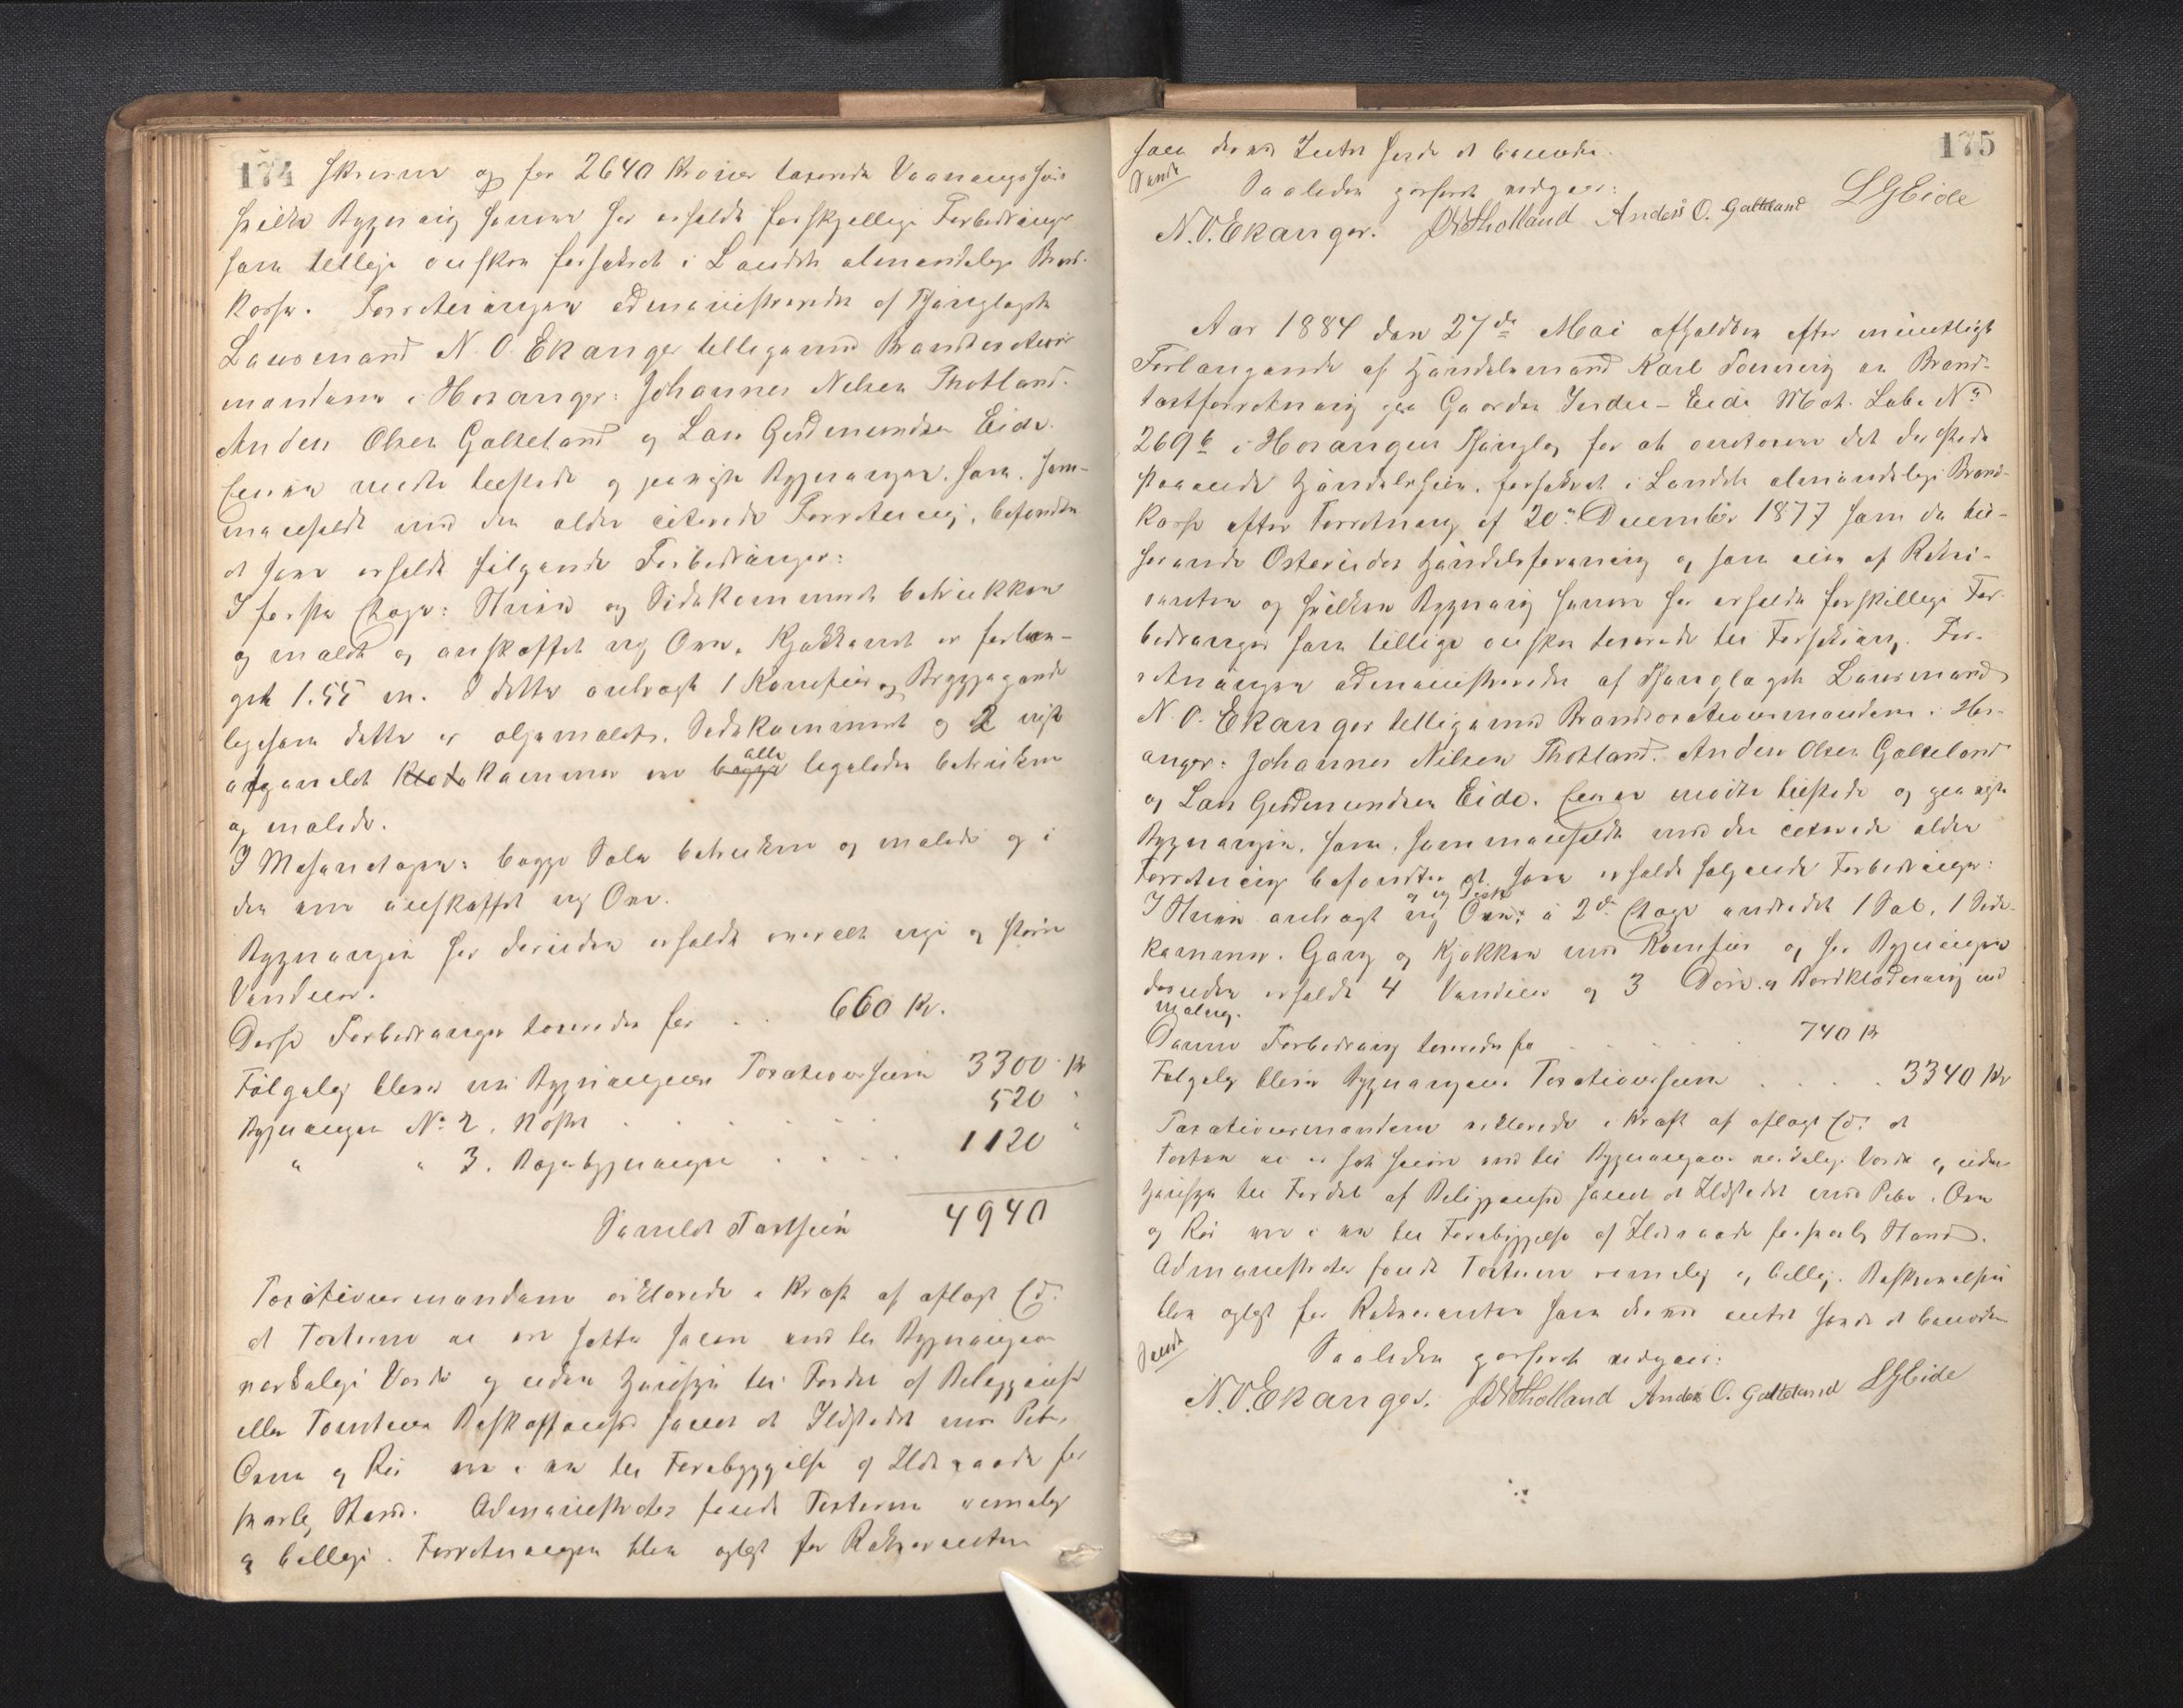 174
skrevne og for 2640 Kroner taxerede Vaaningshus
hvilken Bygning senere har erholdt forskjellige Forbedringer
som tillige ønskes forsikret i Landets almindelige Brand-
kasse. Forretningen administreredes af Thinglagets
Lensmand N. O. Ekanger tilligemed Brandtaxations-
mændene i Hosanger: Johannes Nilsen Thotland.
Anders Olsen Galteland og Lars Gudmundsen Eide.
Enhver mødte tilstede og gransket Bygningen, som, sam-
menholdt med den ældre citerede Forretning, befandtes
at have erholdt følgende Forbedringer:
I første Etage: Stuen og Sidekammeret betrukken
og malet og anskaffet ny Ovn. Kjøkkenet er forlæn-
get 1.55 m. I dette anbragt 1 Komfur og Brygepande
ligesom dette er oljemalet. Sidekammeret og 2 nyt
afpanelet Kammer ere alle ligeledes betrukne
og malede.
I Mesanetagen: begge Sale betrukne og malede og i
den ene anskaffet ny Ovn.
Bygningen har desuden erholdt overalt nye og større
Vinduer.
Disse Forbedringer taxeredes for . . 660 Kr.
Følgelig bliver nu Bygningens Taxationssum 3300 Kr
Bygningen No 2, Nøstet . . . . . . 520 "
" " 3. Bagerbygningen . . . . 1120 "
Samlet Taxtsum 4940
Taxationsmændene erklærede i Kraft af aflagt Ed.
at Taxterne ere satte saavel med til Bygningens
virkelige Værdi og uden Hensyn til Fordel af Beliggenhed
eller Tomtens Beskaffenhed samt at Ildstedet med Pibe,
Ovne og Rør ere i en til Forebyggelse af Ildsvaade for-
svarlig Stand. Administrator fandt Taxterne rimelige
og billige. Forretningen blev oplæst for Rekvirenten
175
som dermed Intet havde at bemærke.
Sluttet
Saaledes passeret vedgaaes:
N. O. Ekanger. JNThotland Anders O. Galteland LGEide
Aar 1884 den 27de Mai afholdtes efter mundtligt
Forlangende af Handelsmand Karl Tønning en Brand-
taxtforretning paa Gaarden Indre-Eide Mat. Løbe No
269b i Hosanger Thinglag for at omtaxere det dersteds
staaende Handelshus, forsikret i Landets almindelige Brand-
kasse efter Forretning af 20de December 1877 som da til-
hørende Osterøens Handelsforening og som eies af Rekvi-
renten og hvilken Bygning senere har erholdt forskjellige For-
bedringer som tillige ønskes taxerede til Forsikring. For-
retningen administreredes af Thinglagets Lensmand
N. O. Ekanger tilligemed Brandtaxationsmændene i Hos-
anger: Johannes Nilsen Thotland. Anders Olsen Galteland
og Lars Gudmundsen Eide. Enhver mødte tilstede og gransket
Bygningen, som, sammenholdt med den citerede ældre
Forretning befandtes at have erholdt følgende Forbedringer:
I Stuen anbragt ny Ovn, i 2den Etage indredet 1 Sal, 1 Side-
kammer. Gang og Kjøkken med Komfur og har Bygningen
desuden erholdt 4 Vinduer og 3 Døre og Bordklædning med
Maling.
Denne Forbedring taxeredes for . . . . . 740 Kr
Følgelig bliver Bygningens Taxationssum . . . . 3340 Kr
Taxationsmændene erklærede i Kraft af aflagt Ed. at
Taxten er sat saavel med til Bygningens virkelige Værdi og uden
Hensyn til Fordel af Beliggenhed samt at Ildstedet med Pibe, Ovn
og Rør ere i en til Forebyggelse af Ildsvaade forsvarlig Stand.
Administrator fandt Taxterne rimelig og billig. Beskrivelsen
blev oplæst for Rekvirenten som dermed intet havde at bemærke
Sluttet
Saaledes passeret vedgaaes:
N. O. Ekanger. JNThotland Anders O. Galteland LGEide